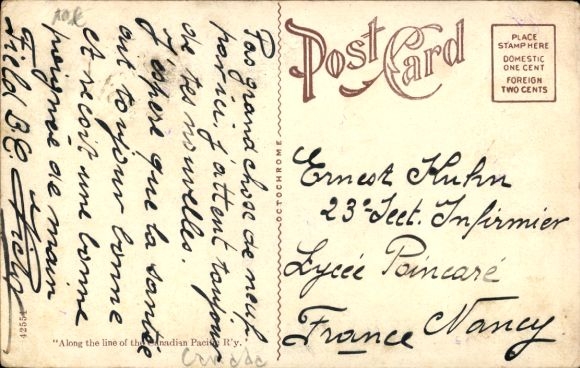 Post Card
PLACE
STAMP HERE
DOMESTIC
ONE CENT
FOREIGN
TWO CENTS
Pas grand chose de neuf
par ici. J'attent toujours
de tes nouvelles.
J'espere que la santée
est toujour bonne
et recoit une bonne
poignee de main
Field B.C.
OCTOCHROME
Ernest Kuhn
23e Sect. Infirmier
Lycée Poincaré
France Nancy
42554
"Along the line of the Canadian Pacific R'y.
Canada